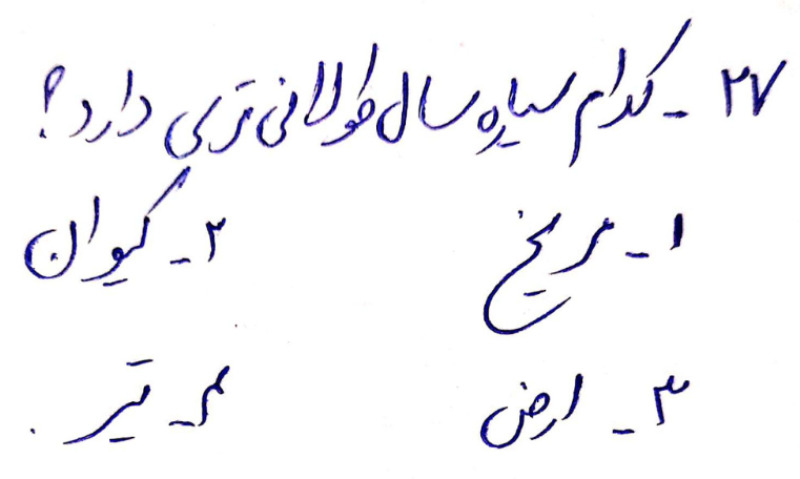 ۲۷ - کدام سیاره سال طولانی تری دارد؟
۱ - مریخ ۲ - کیوان
۳ - ارض ۴ - تیر